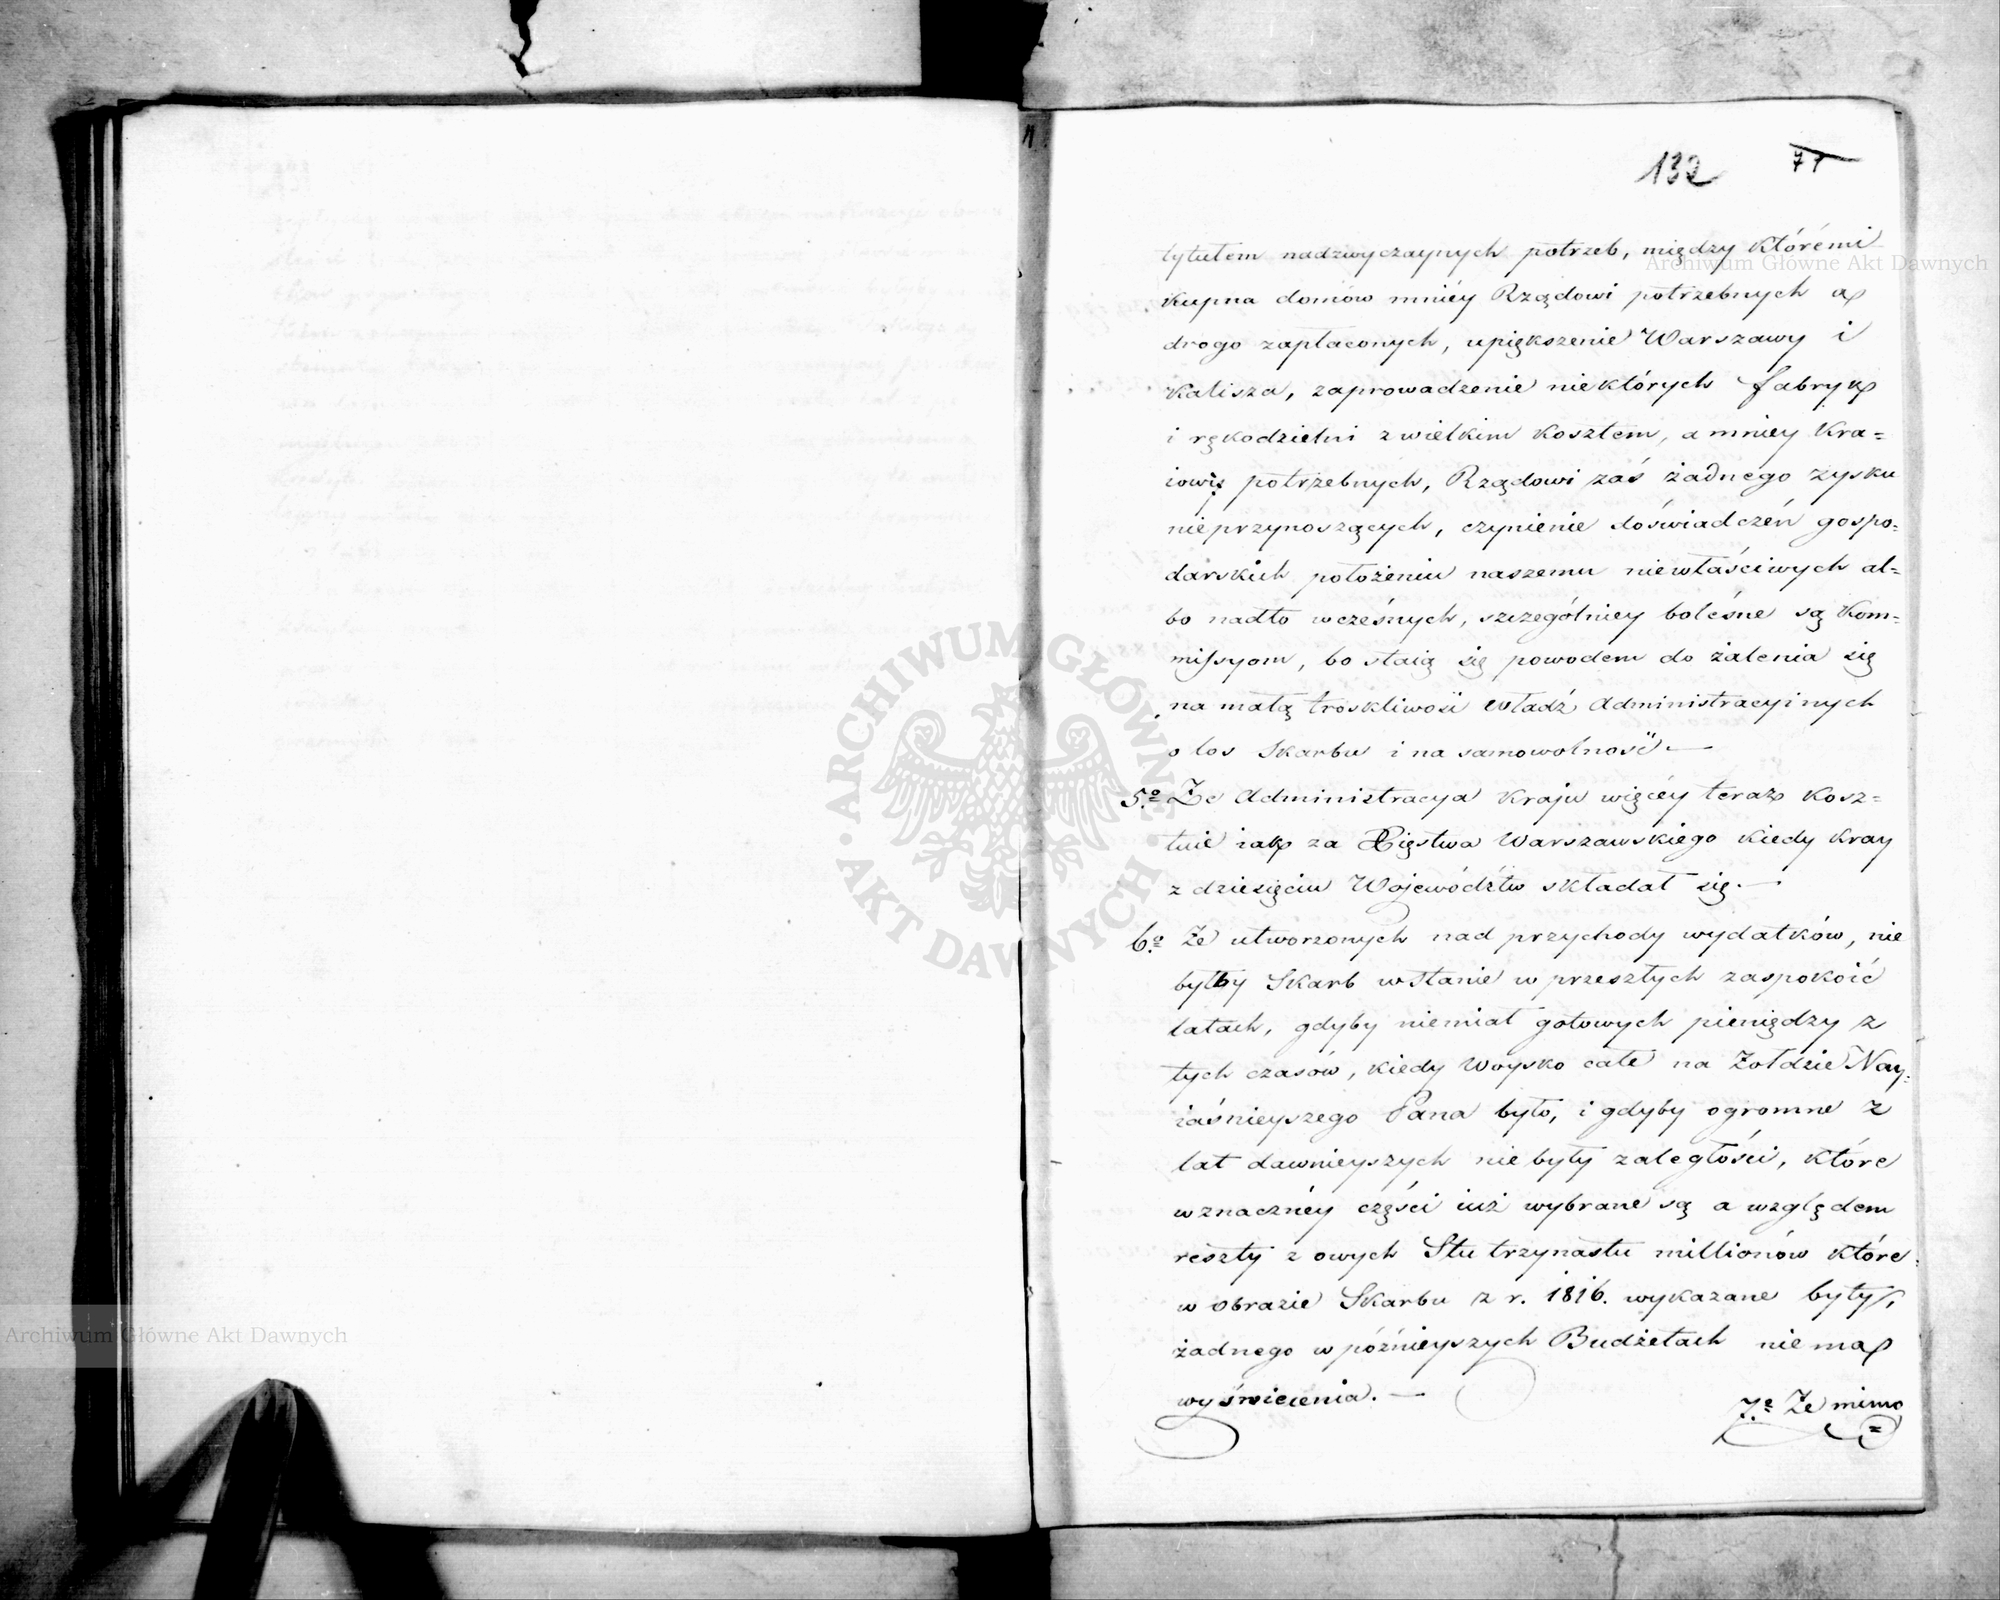 132 77
tytułem nadzwyczaynych potrzeb, między którémi
kupna domów mniéy Rządowi potrzebnych a
drogo zapłaconych, upiększenie Warszawy i
Kalisza, zaprowadzenie niektórych fabryk
i rękodzielni z wielkim kosztem, a mniey Kra=
iowi potrzebnych, Rządowi zaś żadnego zysku
nieprzynoszących, czynienie doświadczeń gospo=
darskich położeniu naszemu niewłaściwych al=
bo nadto wcześnych, szczególniey boleśne są Kom=
missyom, bo staią się powodem do żalenia się
na małą troskliwość władz Administracyinych
o los Skarbu i na samowolność. —
5.º Że Administracya Kraju więcéy teraz kosz=
tuie iak za Xięstwa Warszawskiego kiedy Kray
z dziesięciu Województw składał się. —
6.º Że utworzonych nad przychody wydatków, nie
byłby Skarb w stanie w przeszłych zaspokoić
latach, gdyby niemiał gotowych pieniędzy z
tych czasów, kiedy Woysko całe na Żołdzie Nay=
iaśnieyszego Pana było, i gdyby ogromne z
lat dawnieyszych niebyły zaległości, które
w znacznéy części iuż wybrane są a względem
reszty z owych Stu trzynastu millionów które
w obrazie Skarbu z r. 1816. wykazane były,
żadnego w późnieyszych Budżetach niema
wyświecenia. —
7.º Że mimo
=
Archiwum Główne Akt Dawnych
ARCHIWUM GŁÓWNE · AKT DAWNYCH ·
Archiwum Główne Akt Dawnych